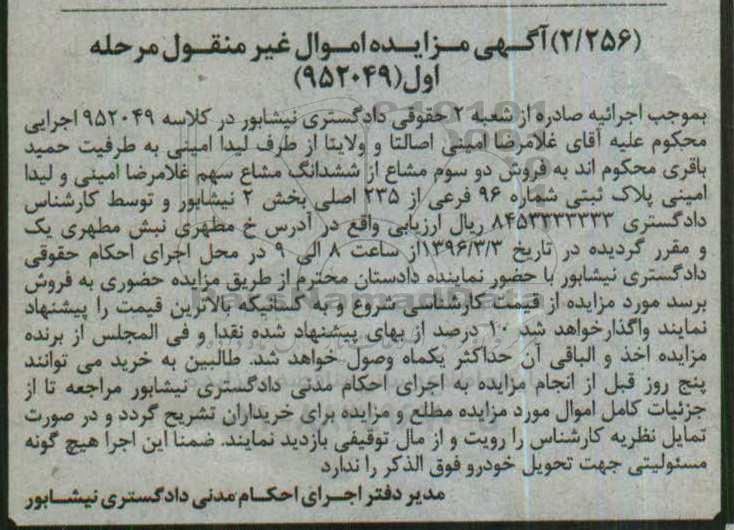 (۲/۲۵۶)آگهی مزایده اموال غیر منقول مرحله
اول(۹۵۲۰۴۹)
بموجب اجرائیه صادره از شعبه ۲ حقوقی دادگستری نیشابور در کلاسه ۹۵۲۰۴۹ اجرایی
محکوم علیه آقای غلامرضا امینی اصالتا و ولایتا از طرف لیدا امینی به طرفیت حمید
باقری محکوم اند به فروش دو سوم مشاع از ششدانگ مشاع سهم غلامرضا امینی و لیدا
امینی پلاک ثبتی شماره ۹۶ فرعی از ۲۳۵ اصلی بخش ۲ نیشابور و توسط کارشناس
دادگستری ۸۴۵۳۳۳۳۳۳۳ ریال ارزیابی واقع در آدرس خ مطهری نبش مطهری یک
و مقرر گردیده در تاریخ ۱۳۹۶/۳/۳از ساعت ۸ الی ۹ در محل اجرای احکام حقوقی
دادگستری نیشابور با حضور نماینده دادستان محترم از طریق مزایده حضوری به فروش
برسد مورد مزایده از قیمت کارشناسی شروع و به کسانیکه بالاترین قیمت را پیشنهاد
نمایند واگذارخواهد شد ۱۰ درصد از بهای پیشنهاد شده نقدا و فی المجلس از برنده
مزایده اخذ و الباقی آن حداکثر یکماه وصول خواهد شد. طالبین به خرید می توانند
پنج روز قبل از انجام مزایده به اجرای احکام مدنی دادگستری نیشابور مراجعه تا از
جزئیات کامل اموال مورد مزایده مطلع و مزایده برای خریداران تشریح گردد و در صورت
تمایل نظریه کارشناس را رویت و از مال توقیفی بازدید نمایند. ضمنا این اجرا هیچ گونه
مسئولیتی جهت تحویل خودرو فوق الذکر را ندارد
مدیر دفتر اجرای احکام مدنی دادگستری نیشابور
ParsNamadData